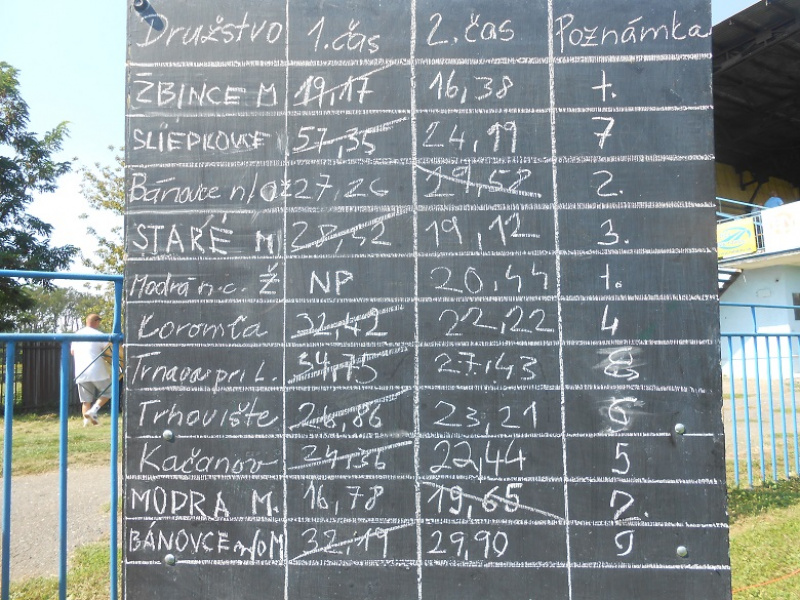 Družstvo 1. čas 2. čas Poznámka
ŽBINCE M 19,17 16,38 1.
SLIEPKOVCE 57,35 24,19 7
Bánovce n/O Ž 27,26 29,52 2.
STARÉ M 28,42 19,12 3.
Modrá n.c. Ž NP 20,44 1.
Koromľa 32,42 22,22 4
Trnava pri L. 34,75 27,43 8
Trhovište 26,86 23,21 6
Kačanov 24,36 22,44 5
MODRA M. 16,78 19,65 2.
BÁNOVCE n/O M 32,19 29,90 9